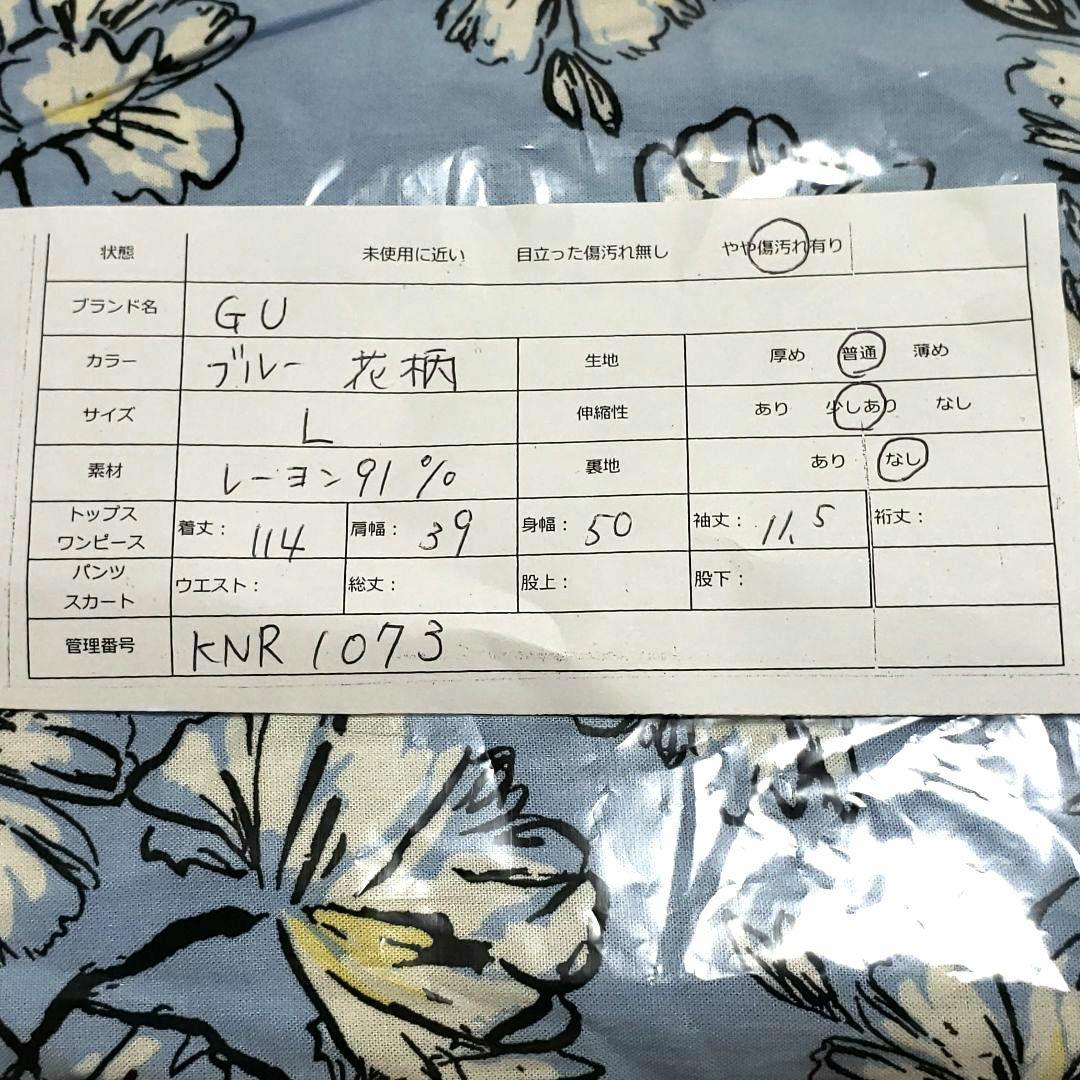 状態 未使用に近い 目立った傷汚れ無し やや傷汚れ有り
ブランド名 GU
カラー ブルー 花柄 生地 厚め 普通 薄め
サイズ L 伸縮性 あり 少しあり なし
素材 レーヨン91% 裏地 あり なし
トップス
ワンピース 着丈: 114 肩幅: 39 身幅: 50 袖丈: 11.5 裄丈:
パンツ
スカート ウエスト: 総丈: 股上: 股下:
管理番号 KNR1073